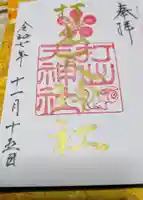 奉拝
打出天神社
令和七年
十一月十五日